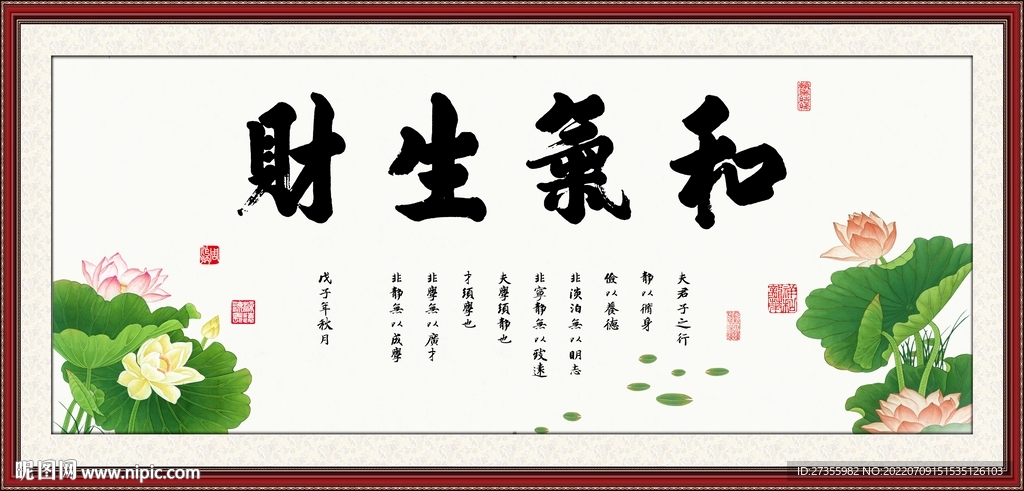 和氣生財
夫君子之行
静以脩身
儉以養德
非淡泊無以明志
非寧静無以致遠
夫學須静也
才須學也
非學無以廣才
非静無以成學
戊子年秋月
昵图网 www.nipic.com
ID:27355982 NO:20220709151535126103